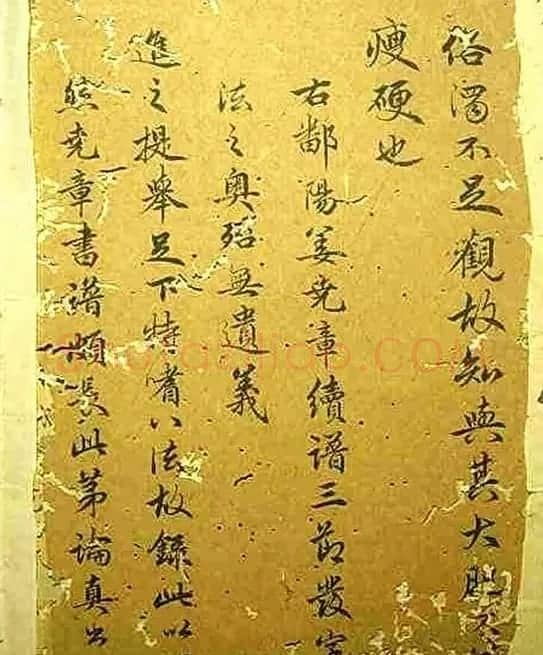 俗濁不足觀故知與其大肥不
瘦硬也
右鄱陽姜堯章續譜三節發
法之奧殆無遺義
進之提舉足下特嗜八法故錄此以
然堯章書譜頗長此第論真